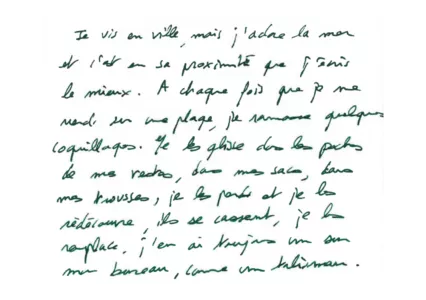 Je vis en ville, mais j'adore la mer
et c'est en sa proximité que j'écris
le mieux. A chaque fois que je me
rends sur une plage, je ramasse quelques
coquillages. Je les glisse dans les poches
de mes vestes, dans mes sacs, dans
mes trousses, je les perds et je les
redécouvre, ils se cassent, je les
remplace, j'en ai toujours un sur
mon bureau, comme un talisman.